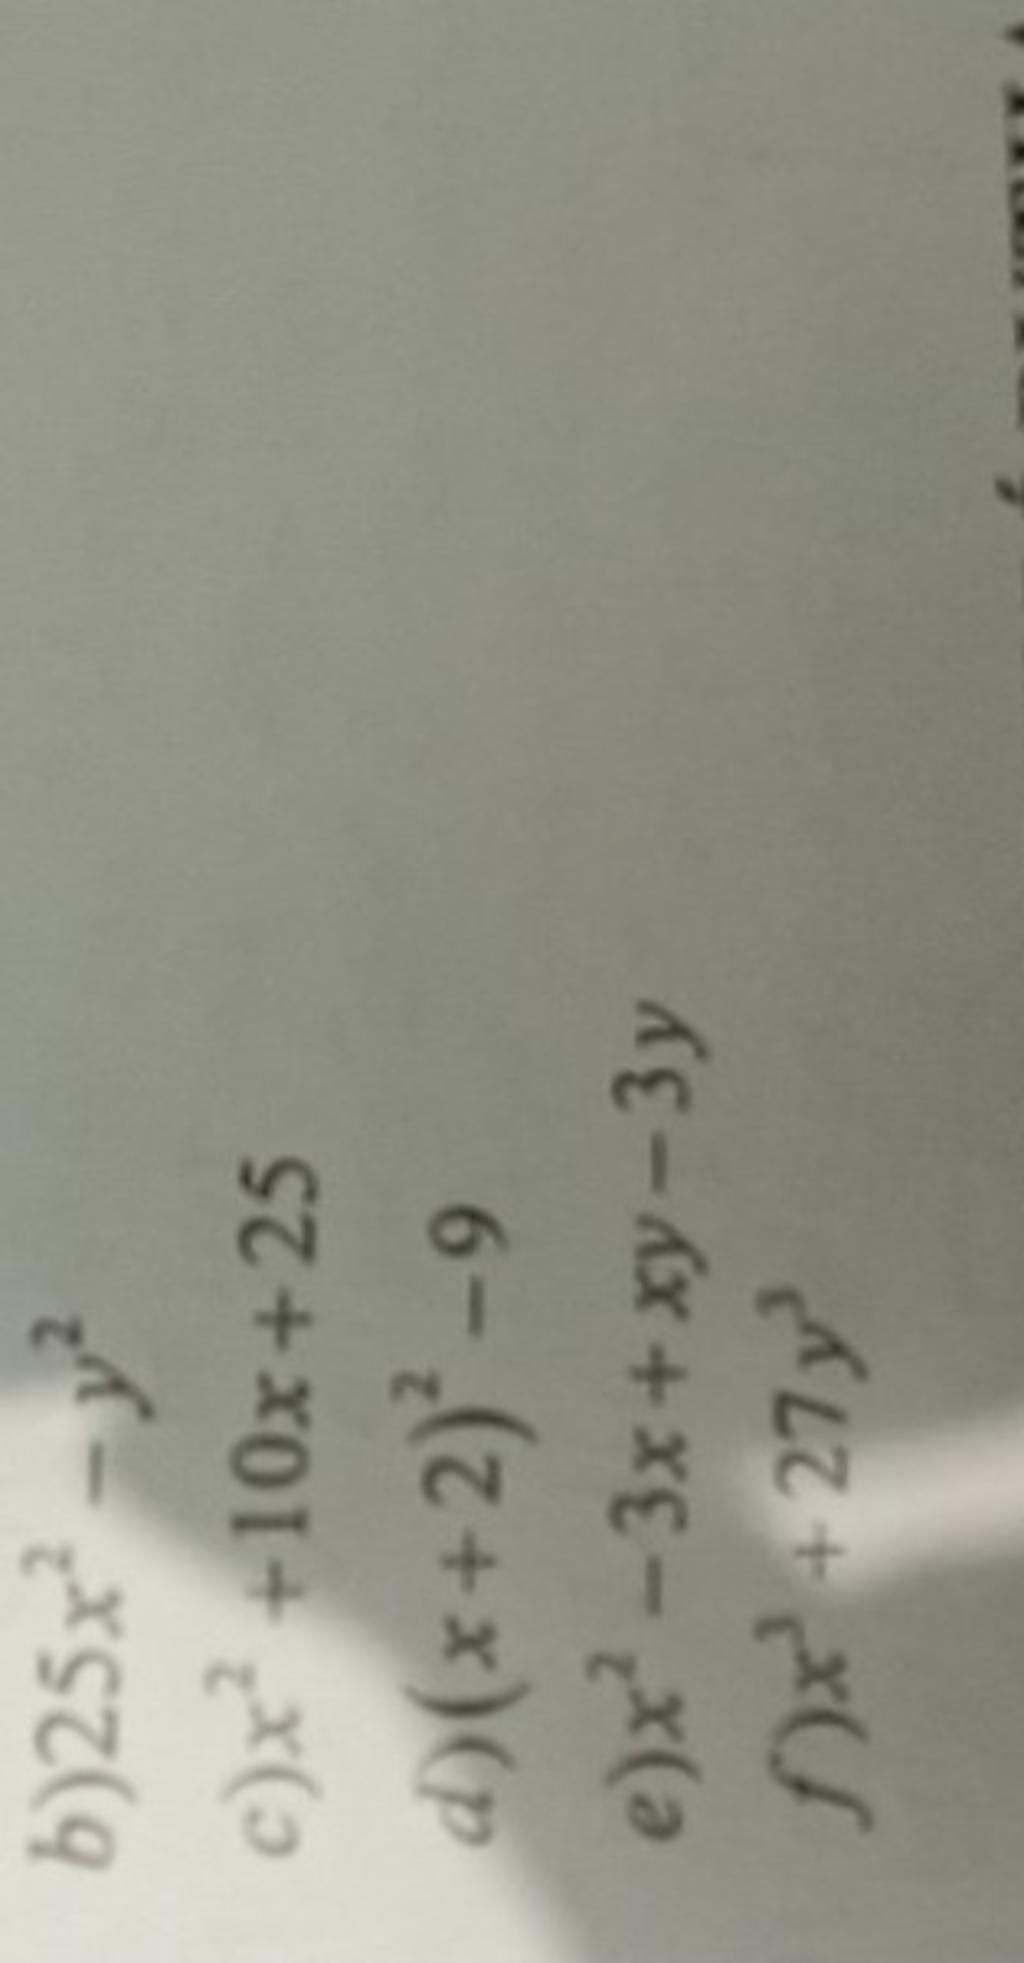 b)25x² − y²
c)x² +10x+25
d)(x+2)² −9
e)x² −3x+xy−3y
f)x³ + 27y³